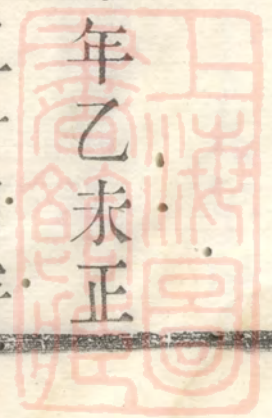 年乙未正
上海圖
書館藏